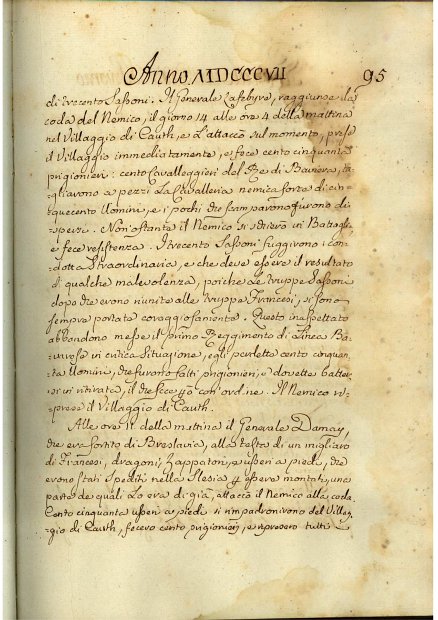 Anno MDCCCVII
95
di trecento Sassoni. Il Generale Lafebure, raggiunse la
coda del Nemico, il giorno 14 alle ore 4 della mattina
nel Villaggio di Cauth, e L'attaccò sul momento, prese
il Villaggio immediatamente, e fece cento cinquanta
prigionieri: cento Cavalleggieri del Re di Baviera, ta-
gliavono a pezzi La Cavalleria nemica forte di cin-
quecento Uomini, e i pochi che scamparono furono di-
spersi. Non ostante il Nemico si schierò in Battaglia
e fece resistenza. I trecento Sassoni fuggirono: con-
dotta straordinaria, e che deve essere il resultato
di qualche malevolenza, poiche Le truppe Sassoni
dopo che erono riunite alle truppe Francesi, si sono
sempre portate coraggiosamente. Questo inaspettato
abbandono messe il primo Reggimento di Linea Ba-
varese in critica situazione, egli perdette cento cinquan-
ta Uomini, che furono fatti prigionieri, e dovette batter-
si in ritirata, il che fece con ordine. Il Nemico ri-
prese il Villaggio di Cauth.
Alle ore 11 della mattina il Generale Damay,
che era sortito di Breslavia, alla testa di un migliaro
di Francesi, dragoni, Zappatori, e ussen a piedi, che
erono stati spediti nella Slesia essere montati, una
parte de quali Lo era di già, attaccò il Nemico alla coda.
Cento cinquanta ussen a piedi s'impadronirono del Villag-
gio di Cauth, fecero cento prigionieri, e ripresero tutti